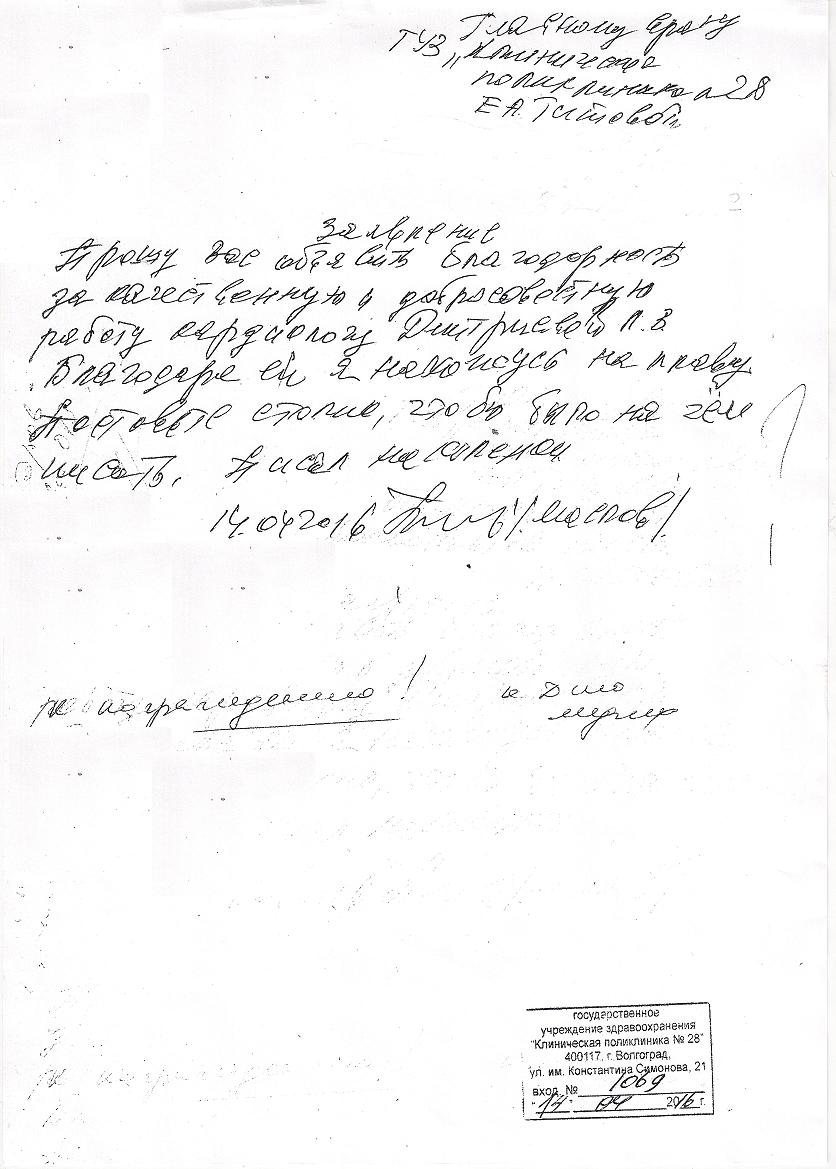 Главному врачу
ГУЗ „Клиническая
поликлиника n 28
Е.А. Титовой
Заявление
Прошу вас объявить благодарность
за качественную и добросовестную
работу кардиологу Дмитриевой Л.В.
Благодаря ей я нахожусь на плаву.
Поставьте столик, чтобы было на чём
писать. Писал на коленях
14.04 2016 /Маслов/.
к награждению!
государственное
учреждение здравоохранения
"Клиническая поликлиника № 28"
400117, г. Волгоград,
ул. им. Константина Симонова, 21
вход. № 1069
"14" 04 2016 г.